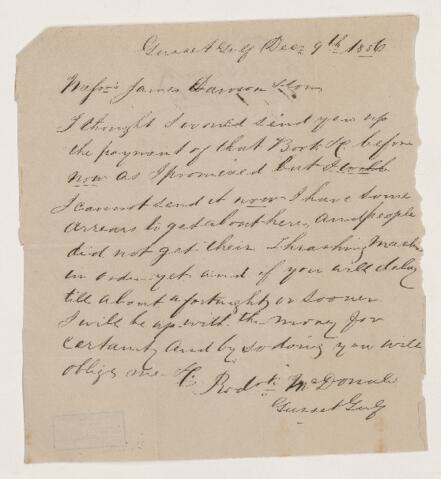 Dec 9th 1886
Messrs James Dawson & Son
I thought I would send you up
the payment of that Book &c before
now as I promised but I
I cannot send it now I have some
arrears to get about here, and people
did not get their Thrashing Machine
in order yet and if you will delay
till about a fortnight or sooner
I will be up with the money for
certainty and by so doing you will
oblige me &c
Rodk McDonald